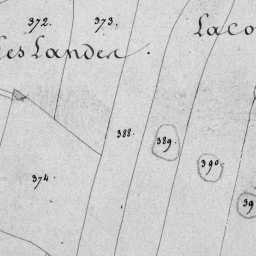 372.
373.
Laco
les Lander
388.
389.
390.
374.
39